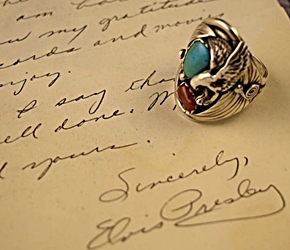 I am
my gratitude
records and movies
enjoy.
I say tha
well done. M
yours.
Sincerely,
Elvis Presley